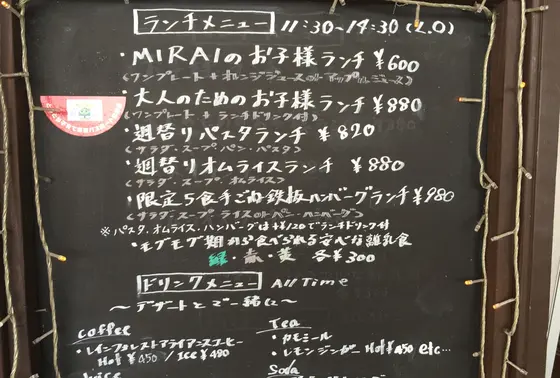 ランチメニュー 11:30~14:30(L.O)
・MIRAIのお子様ランチ ¥600
(ワンプレート + オレンジジュースorアップルジュース)
・大人のためのお子様ランチ ¥880
(ワンプレート + ランチドリンク付)
・週替りパスタランチ ¥820
(サラダ・スープ・パン・パスタ)
・週替りオムライスランチ ¥880
(サラダ・スープ オムライス)
・限定5食手ごね鉄板ハンバーグランチ ¥980
(サラダ・スープ ライスorパン・ハンバーグ)
※パスタ、オムライス、ハンバーグは+¥120でランチドリンク付
・モグモグ期から食べられる安心な離乳食
緑・赤・黄 各¥300
ドリンクメニュー All Time
~デザートとご一緒に~
coffee
・レインフォレストアライアンスコーヒー
Hot ¥450 / Ice ¥480
Juice
Tea
・カモミール
・レモンジンガー Hot ¥450 etc…
Soda